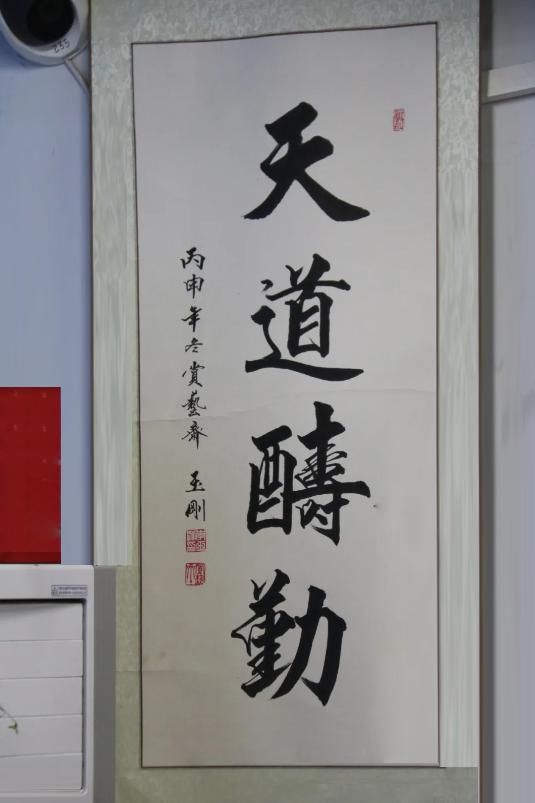 天道醻勤
丙申年冬賞藝齋 玉剛